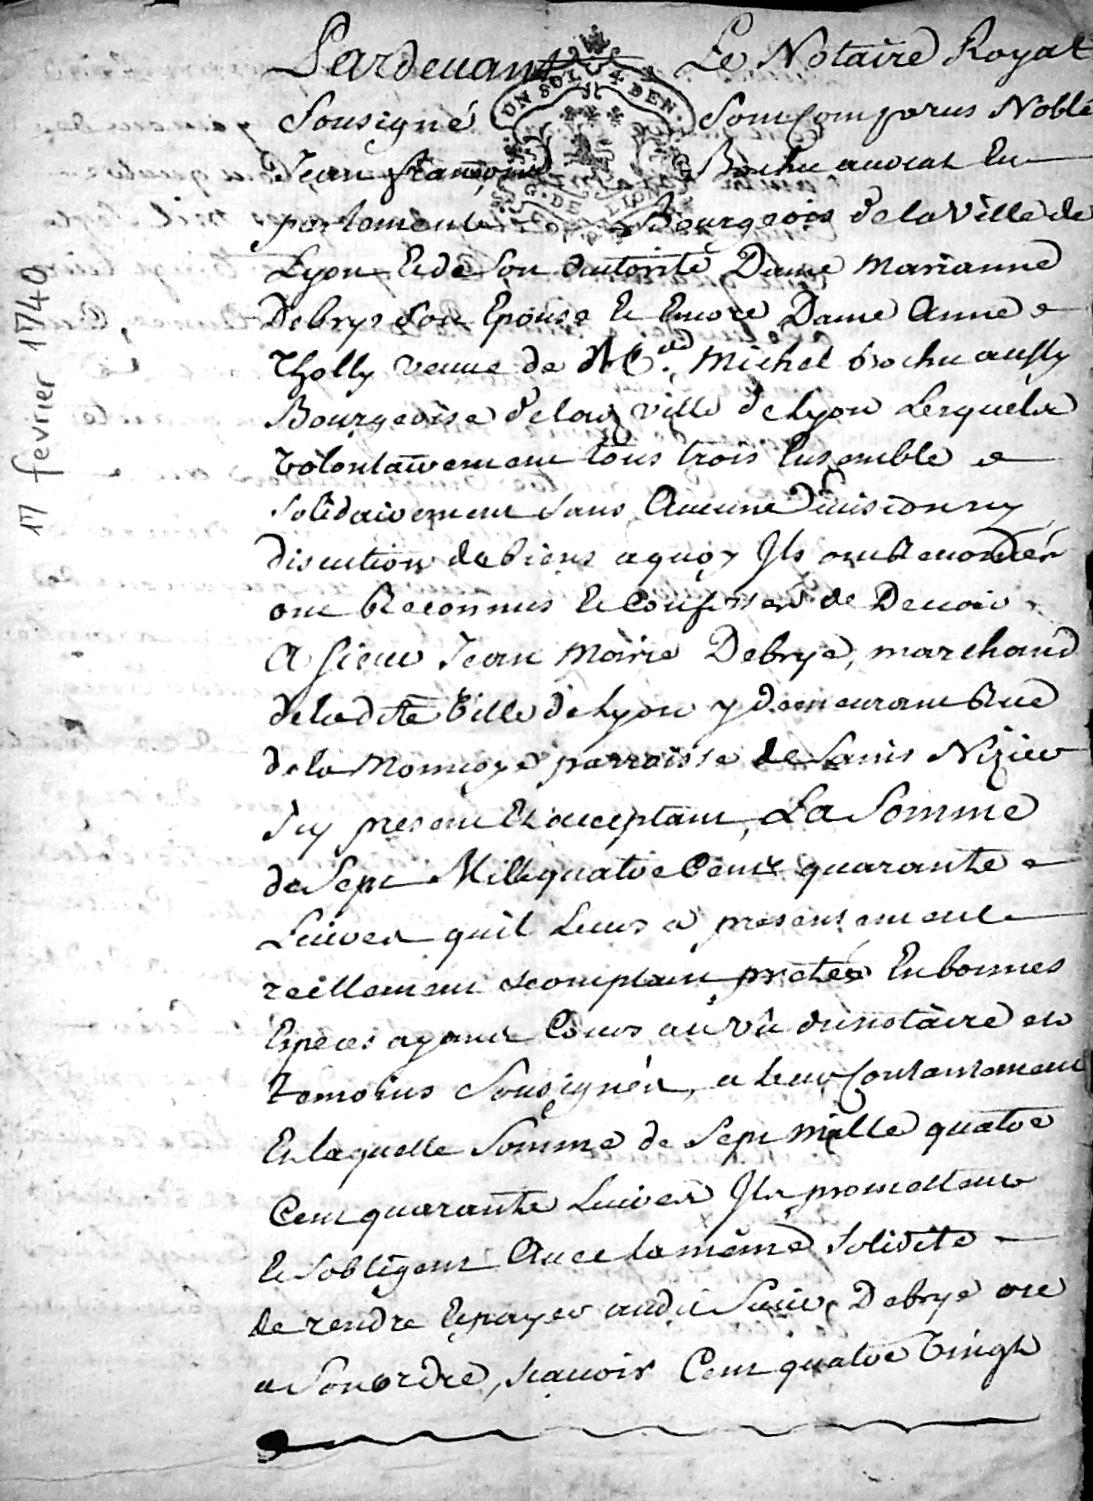 Pardevant Le Notaire Royal
Sousigné Sont Comparus Noble
Jean françois Bochu avocat En
parlement Bourgeois de la Ville de
Lyon Et de Son autorité Dame Marianne
Debrye Son Epouse Et Encore Dame Anne
Tholly veuve de Michel Bochu aussy
Bourgeoise de lad ville de Lyon Lesquels
volontairement tous trois Ensemble et
solidairement sans Aucune Division ny
discution de biens a quoy Ils ont Renoncés
ont Reconnus Et Confessés de Devoir
A sieur Jean Marie Debrye, marchand
de laditte Ville de Lyon y demeurant Rue
de la Monnoye parroisse de Saint Nizier
Icy present Et acceptant, La Somme
de Sept Mille quatre Cents quarante
Livres quil Leurs a presentement
reellement et comptant prétés En bonnes
Espèces ayant Cours au vû du notaire et
temoins Sousignés, a leur Contantement
En laquelle Somme de Sept mille quatre
Cent quarante Livres Ils promettent
Et sobligent Avec la même solidité
de rendre Et payer audit Sieur Debrye ou
a Son ordre, sçavoir Cent quatre Vingt
17 fevrier 1740
UN SOL 4 DEN.